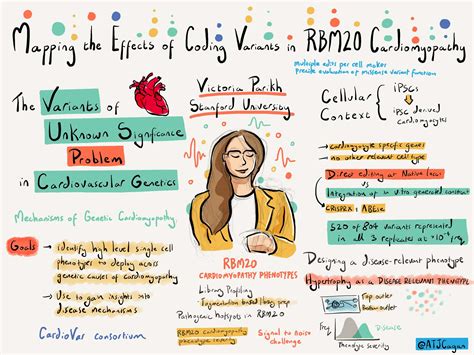 Mapping the Effects of Coding Variants in RBM20 Cardiomyopathy
multiple edits per cell maker
precise evaluation of missense variant function
Victoria Parikh
Stanford University
The Variants of
Unknown Significance
Problem
in Cardiovascular Genetics
Mechanisms of Genetic Cardiomyopathy
Goals
→ identify high level single cell
phenotypes to deploy across
genetic causes of cardiomyopathy
→ Use to gain insights into
disease mechanisms
CardioVar consortium
RBM20
CARDIOMYOPATHY PHENOTYPES
Library Profiling
library prep
Pathogenic hotspots in RBM20
RBM20 cardiomyopathy
phenotype severity
Signal to Noise
challenge
Cellular
Context
iPSCs
iPSC derived
cardiomyocytes
→ cardiomyocyte specific genes
→ no other relevant cell type
→ Direct editing at Native locus
vs
Integration of in vitro generated construct
CRISPRx : ABE8e
520 of 804 variants represented
in all 3 replicates at freq
Designing a disease-relevant phenotype
Hypertrophy as a DISEASE RELEVANT PHENOTYPE
Top outlier
Bottom outlier
Freq
Disease
Phenotype severity
@ATJCagan